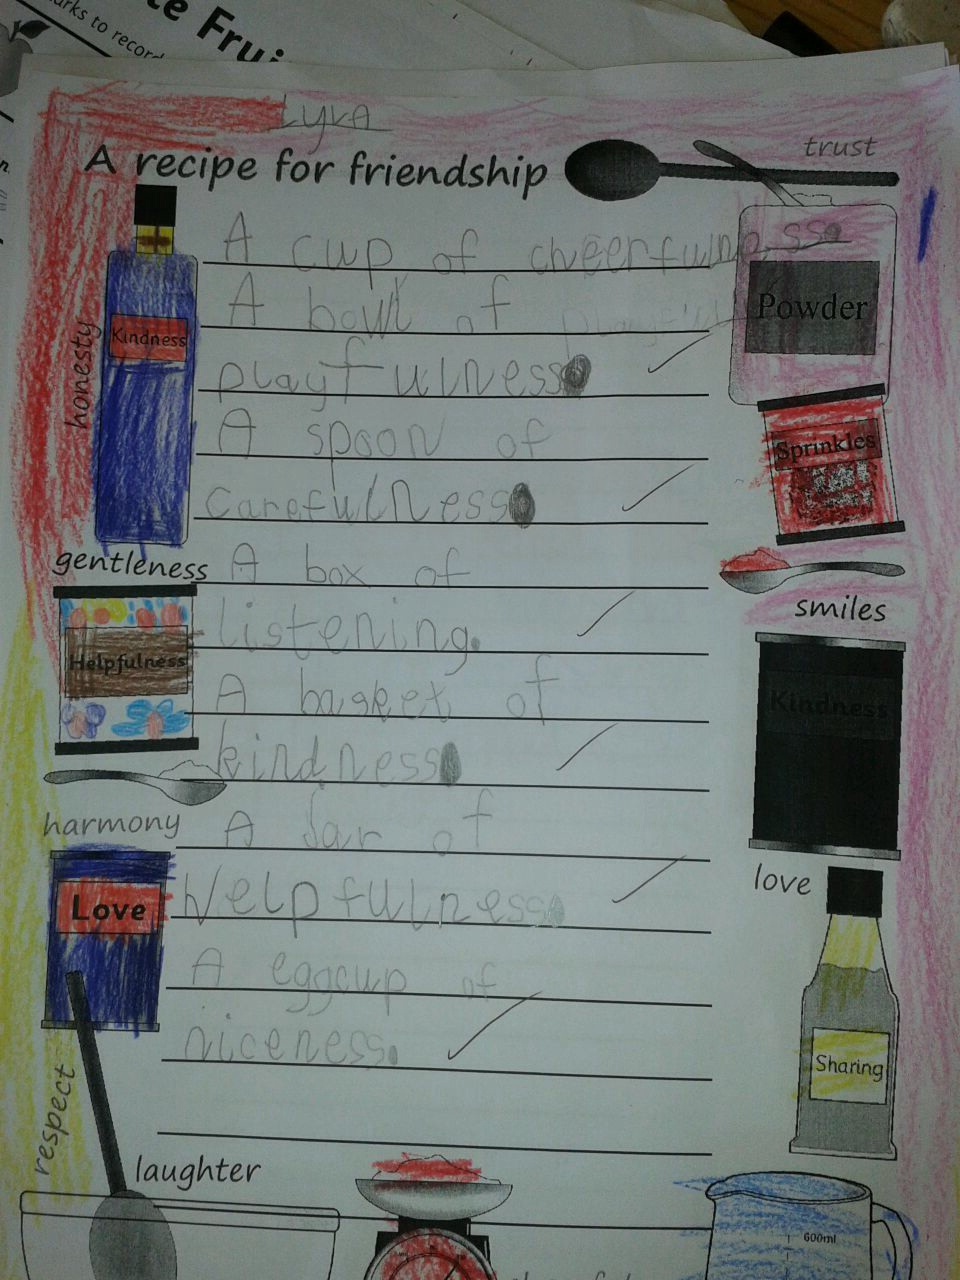 te Frui
arks to record
Lyra
A recipe for friendship
trust
A cup of cheerfulness.
A bowl of
Powder
Kindness
honesty
playfulness.
A spoon of
Sprinkles
carefulness.
gentleness
A box of
smiles
listening.
Helpfulness
A basket of
Kindness
kindness.
harmony
A Jar of
love
Love
Helpfulness.
A eggcup of
niceness.
Sharing
respect
laughter
600ml